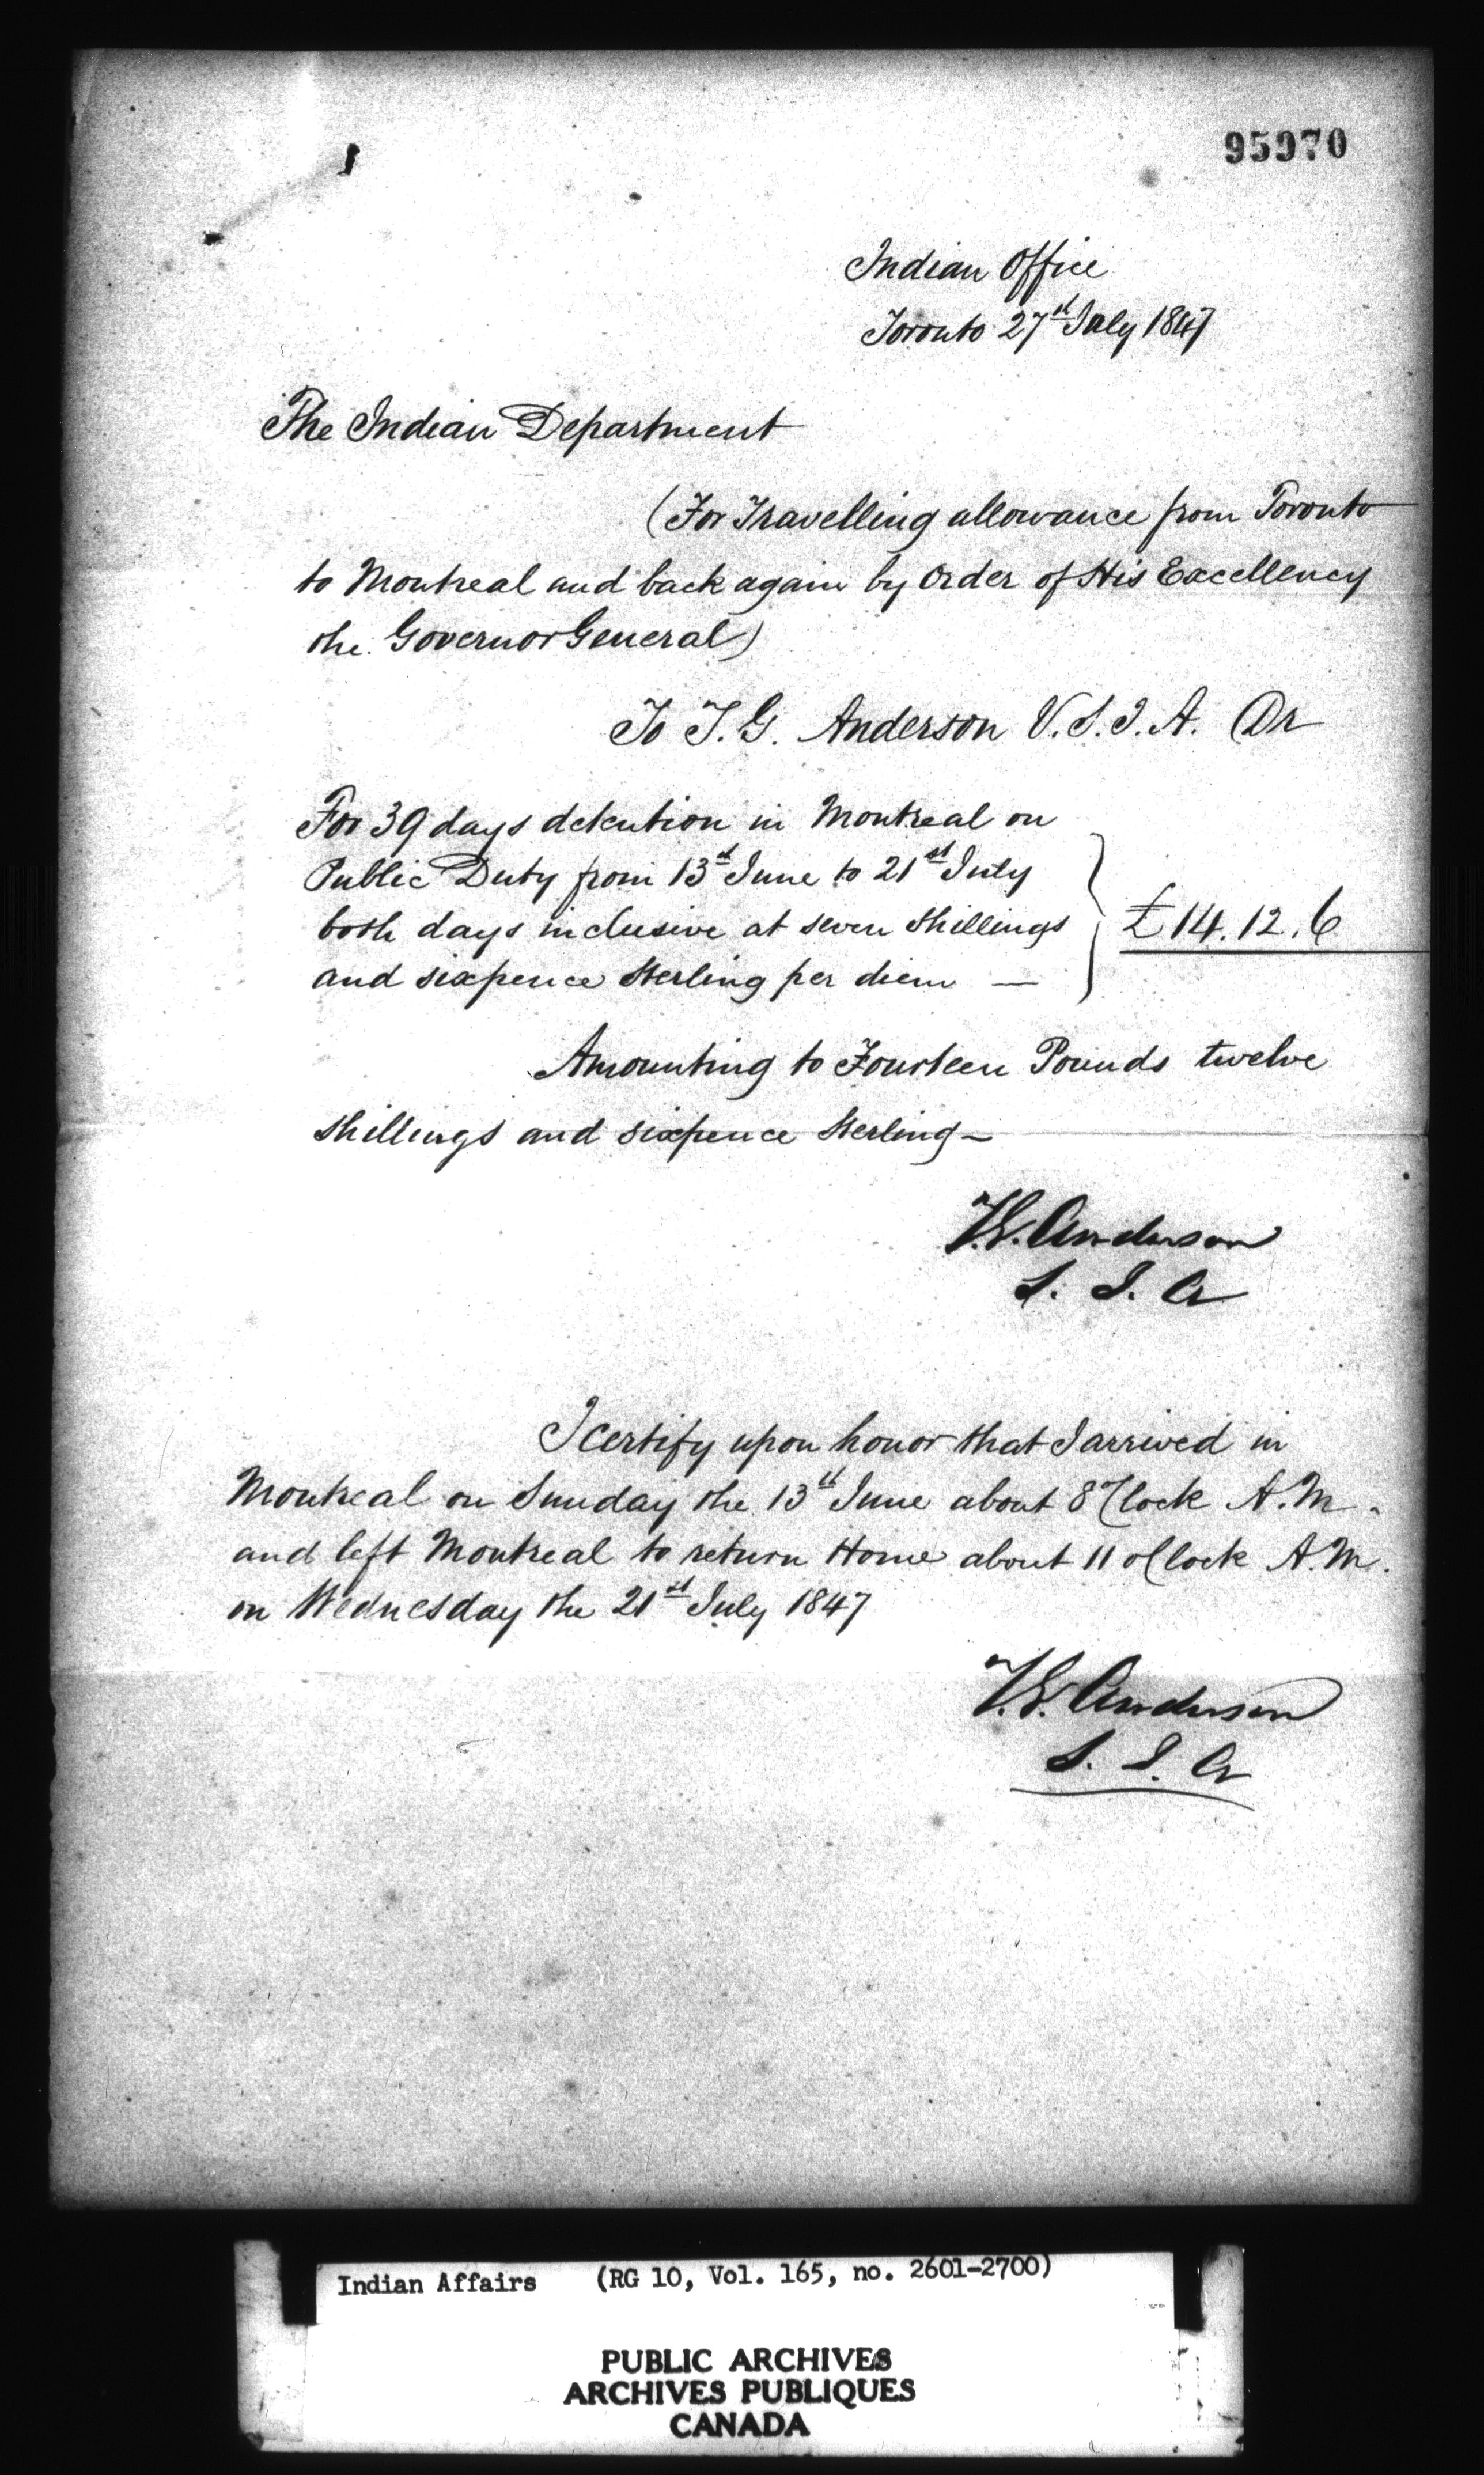 95970
Indian Office
Toronto 27th July 1847
The Indian Department
(For Travelling allowance from Toronto
to Montreal and back again by Order of His Excellency
the Governor General)
To T. G. Anderson V. S. I. A. Dr
For 39 days detention in Montreal on
Public Duty from 13th June to 21st July
both days inclusive at seven Shillings
and sixpence Sterling per diem —
£14.12.6
Amounting to Fourteen Pounds twelve
Shillings and sixpence Sterling —
T.G. Anderson
S. I. A
I Certify upon honor that I arrived in
Montreal on Sunday the 13th June about 8 O'Clock A.M.
and left Montreal to return Home about 11 oClock A.M.
on Wednesday the 21st July 1847
T.G. Anderson
S. I. A
Indian Affairs (RG 10, Vol. 165, no. 2601-2700)
PUBLIC ARCHIVES
ARCHIVES PUBLIQUES
CANADA